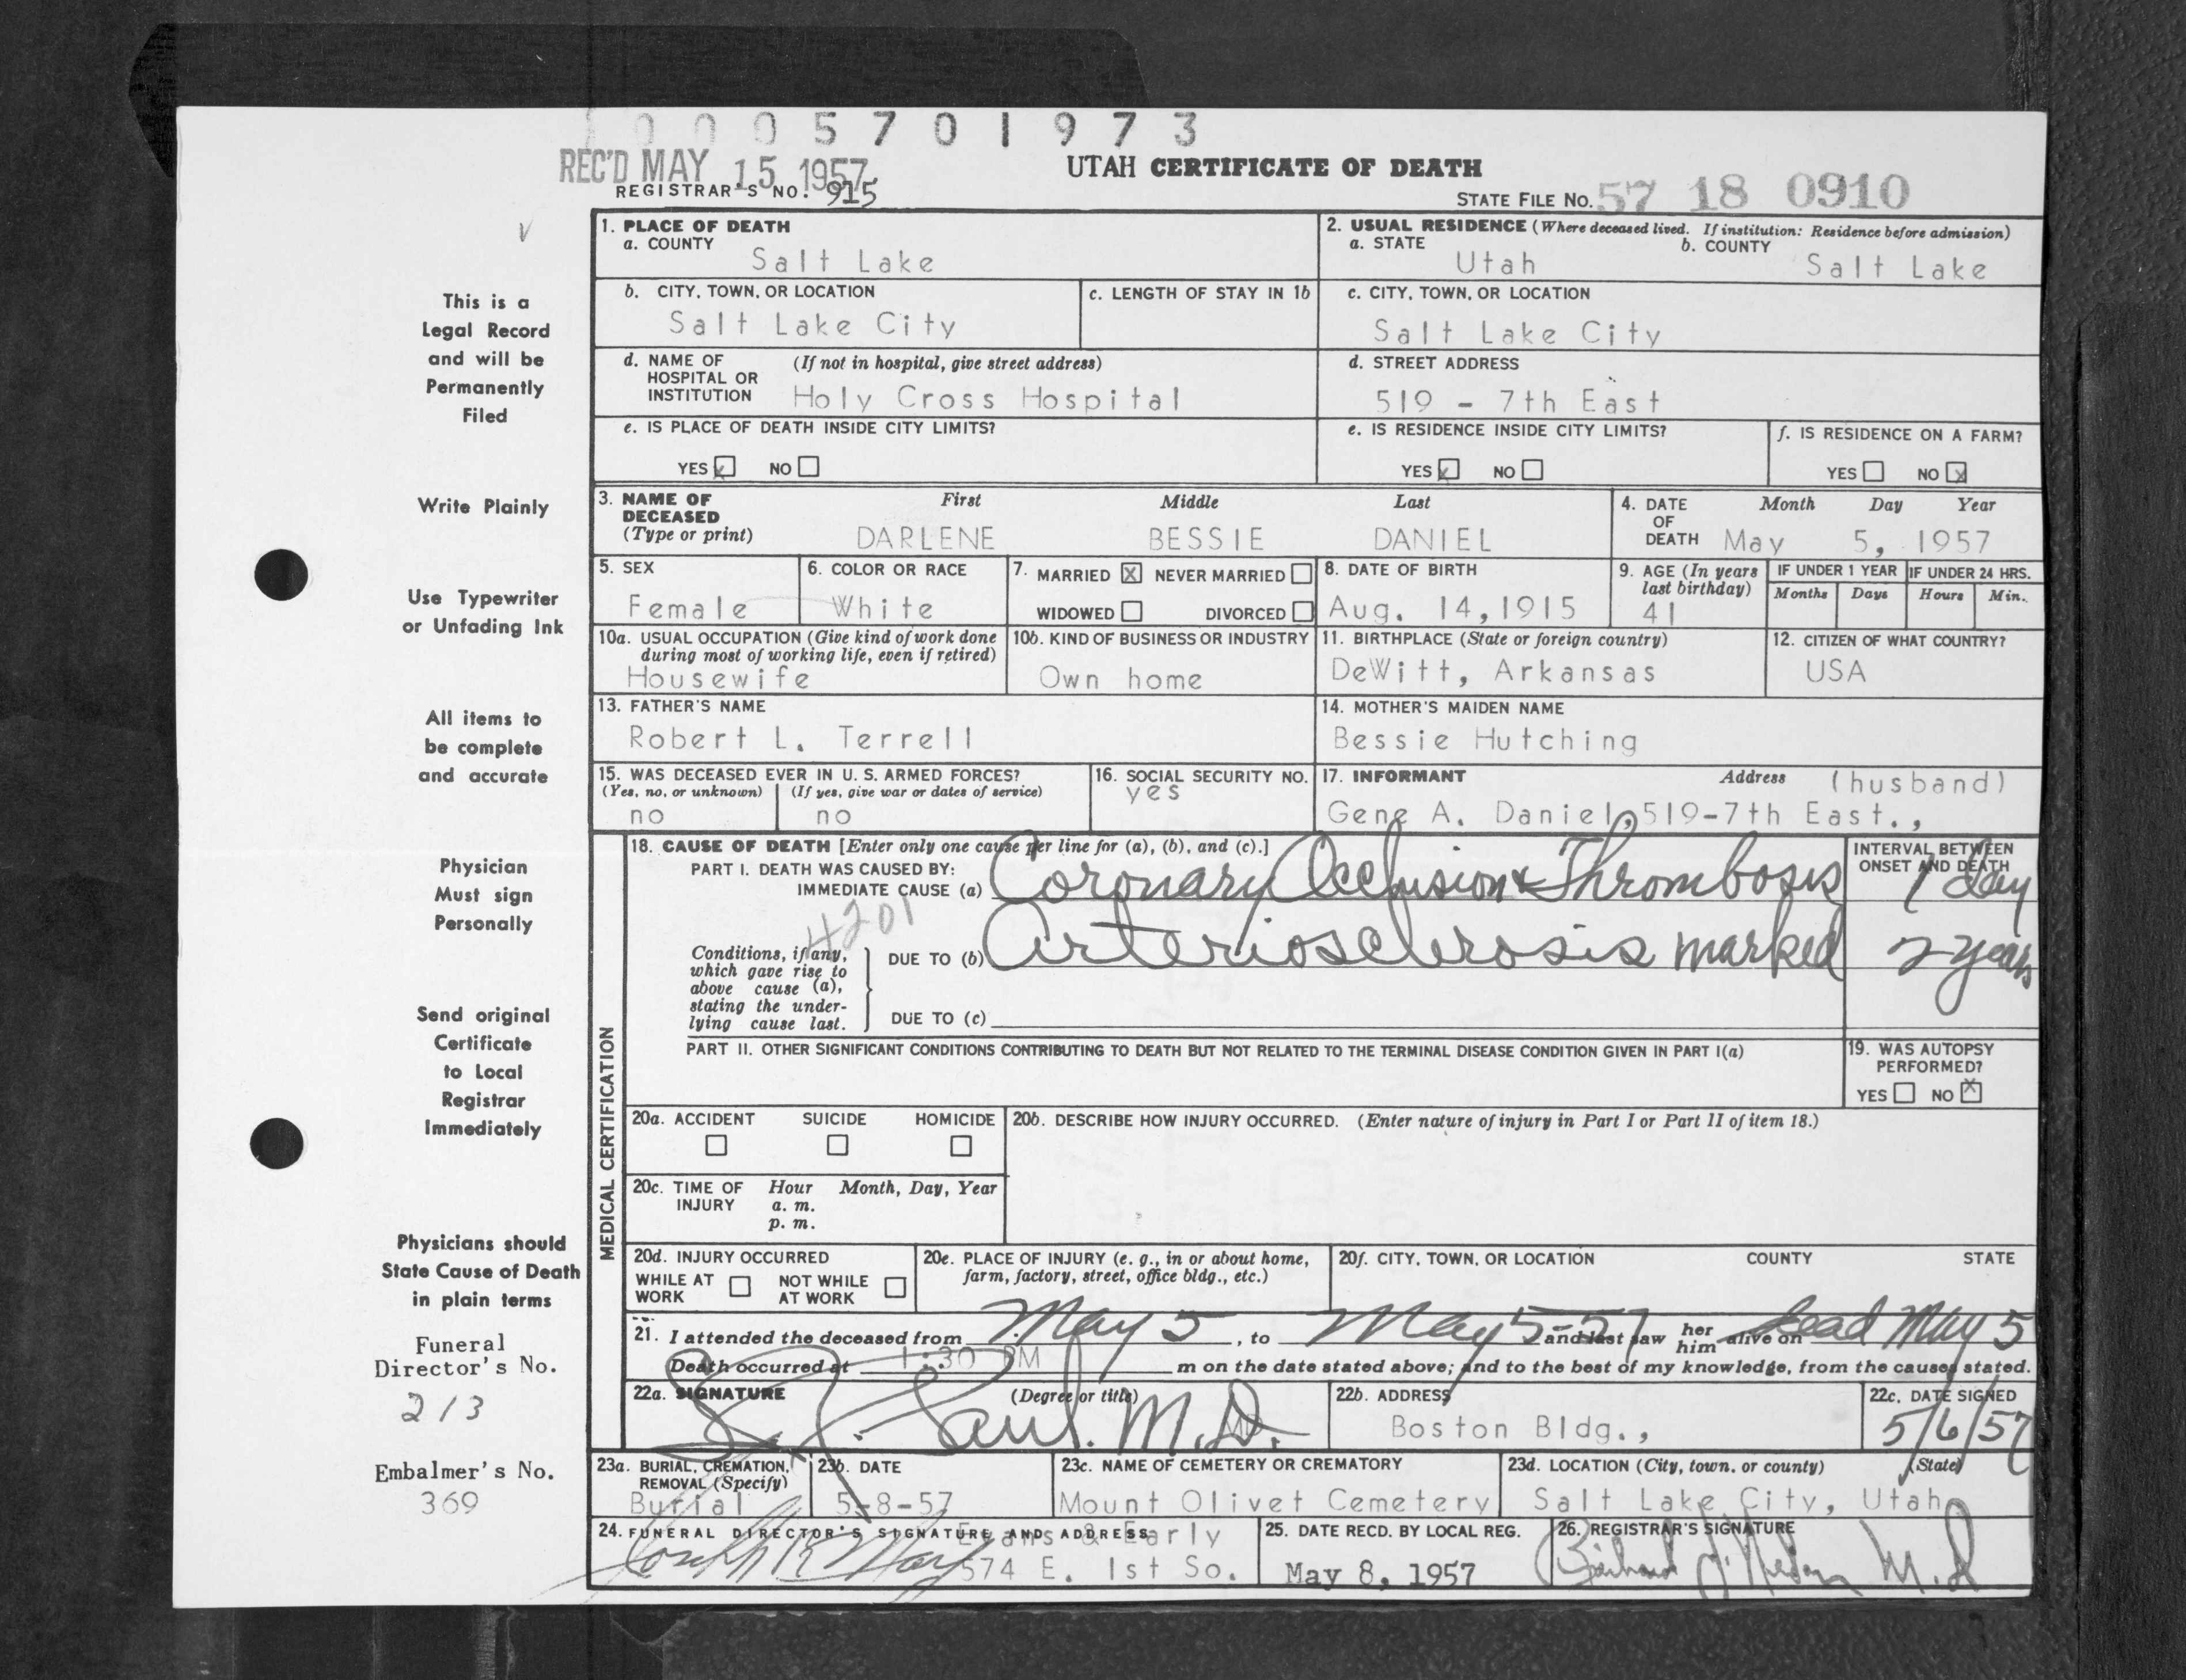 0 0 0 5 7 0 1 9 7 3
REC'D MAY 15 1957
UTAH CERTIFICATE OF DEATH
REGISTRAR'S NO. 915
STATE FILE NO. 57 18 0910
This is a
Legal Record
and will be
Permanently
Filed
Write Plainly
Use Typewriter
or Unfading Ink
All items to
be complete
and accurate
Physician
Must sign
Personally
Send original
Certificate
to Local
Registrar
Immediately
Physicians should
State Cause of Death
in plain terms
Funeral
Director's No.
213
Embalmer's No.
369
1. PLACE OF DEATH
a. COUNTY
Salt Lake
2. USUAL RESIDENCE (Where deceased lived. If institution: Residence before admission)
a. STATE b. COUNTY
Utah Salt Lake
b. CITY, TOWN, OR LOCATION
Salt Lake City
c. LENGTH OF STAY IN 1b
c. CITY, TOWN, OR LOCATION
Salt Lake City
d. NAME OF (If not in hospital, give street address)
HOSPITAL OR
INSTITUTION Holy Cross Hospital
d. STREET ADDRESS
519 - 7th East
e. IS PLACE OF DEATH INSIDE CITY LIMITS?
YES x NO
e. IS RESIDENCE INSIDE CITY LIMITS?
YES x NO
f. IS RESIDENCE ON A FARM?
YES NO x
3. NAME OF First Middle Last
DECEASED
(Type or print) DARLENE BESSIE DANIEL
4. DATE Month Day Year
OF
DEATH May 5, 1957
5. SEX
Female
6. COLOR OR RACE
White
7. MARRIED X NEVER MARRIED
WIDOWED DIVORCED
8. DATE OF BIRTH
Aug. 14, 1915
9. AGE (In years
last birthday)
41
IF UNDER 1 YEAR
Months Days
IF UNDER 24 HRS.
Hours Min.
10a. USUAL OCCUPATION (Give kind of work done
during most of working life, even if retired)
Housewife
10b. KIND OF BUSINESS OR INDUSTRY
Own home
11. BIRTHPLACE (State or foreign country)
DeWitt, Arkansas
12. CITIZEN OF WHAT COUNTRY?
USA
13. FATHER'S NAME
Robert L. Terrell
14. MOTHER'S MAIDEN NAME
Bessie Hutching
15. WAS DECEASED EVER IN U. S. ARMED FORCES?
(Yes, no, or unknown) (If yes, give war or dates of service)
no no
16. SOCIAL SECURITY NO.
yes
17. INFORMANT Address (husband)
Gene A. Daniel, 519-7th East.,
MEDICAL CERTIFICATION
18. CAUSE OF DEATH [Enter only one cause per line for (a), (b), and (c).]
PART I. DEATH WAS CAUSED BY:
IMMEDIATE CAUSE (a) Coronary Occlusion & Thrombosis
INTERVAL BETWEEN
ONSET AND DEATH
1 day
4201
Conditions, if any,
which gave rise to
above cause (a),
stating the under-
lying cause last.
DUE TO (b) Arteriosclerosis marked 2 years
DUE TO (c)
PART II. OTHER SIGNIFICANT CONDITIONS CONTRIBUTING TO DEATH BUT NOT RELATED TO THE TERMINAL DISEASE CONDITION GIVEN IN PART I(a)
19. WAS AUTOPSY
PERFORMED?
YES NO X
20a. ACCIDENT SUICIDE HOMICIDE
20b. DESCRIBE HOW INJURY OCCURRED. (Enter nature of injury in Part I or Part II of item 18.)
20c. TIME OF Hour Month, Day, Year
INJURY a. m.
p. m.
20d. INJURY OCCURRED
WHILE AT NOT WHILE
WORK AT WORK
20e. PLACE OF INJURY (e. g., in or about home,
farm, factory, street, office bldg., etc.)
20f. CITY, TOWN, OR LOCATION COUNTY STATE
21. I attended the deceased from May 5, to May 5-57 and last saw her him alive on dead May 5
Death occurred at 1:30 PM m on the date stated above; and to the best of my knowledge, from the causes stated.
22a. SIGNATURE (Degree or title)
Paul. M.D. MD.
22b. ADDRESS
Boston Bldg.,
22c. DATE SIGNED
5/6/57
23a. BURIAL, CREMATION,
REMOVAL (Specify)
Burial
23b. DATE
5-8-57
23c. NAME OF CEMETERY OR CREMATORY
Mount Olivet Cemetery
23d. LOCATION (City, town, or county) (State)
Salt Lake City, Utah
24. FUNERAL DIRECTOR'S SIGNATURE AND ADDRESS
Evans & Early
Joseph
574 E. 1st So.
25. DATE RECD. BY LOCAL REG.
May 8, 1957
26. REGISTRAR'S SIGNATURE
M.D